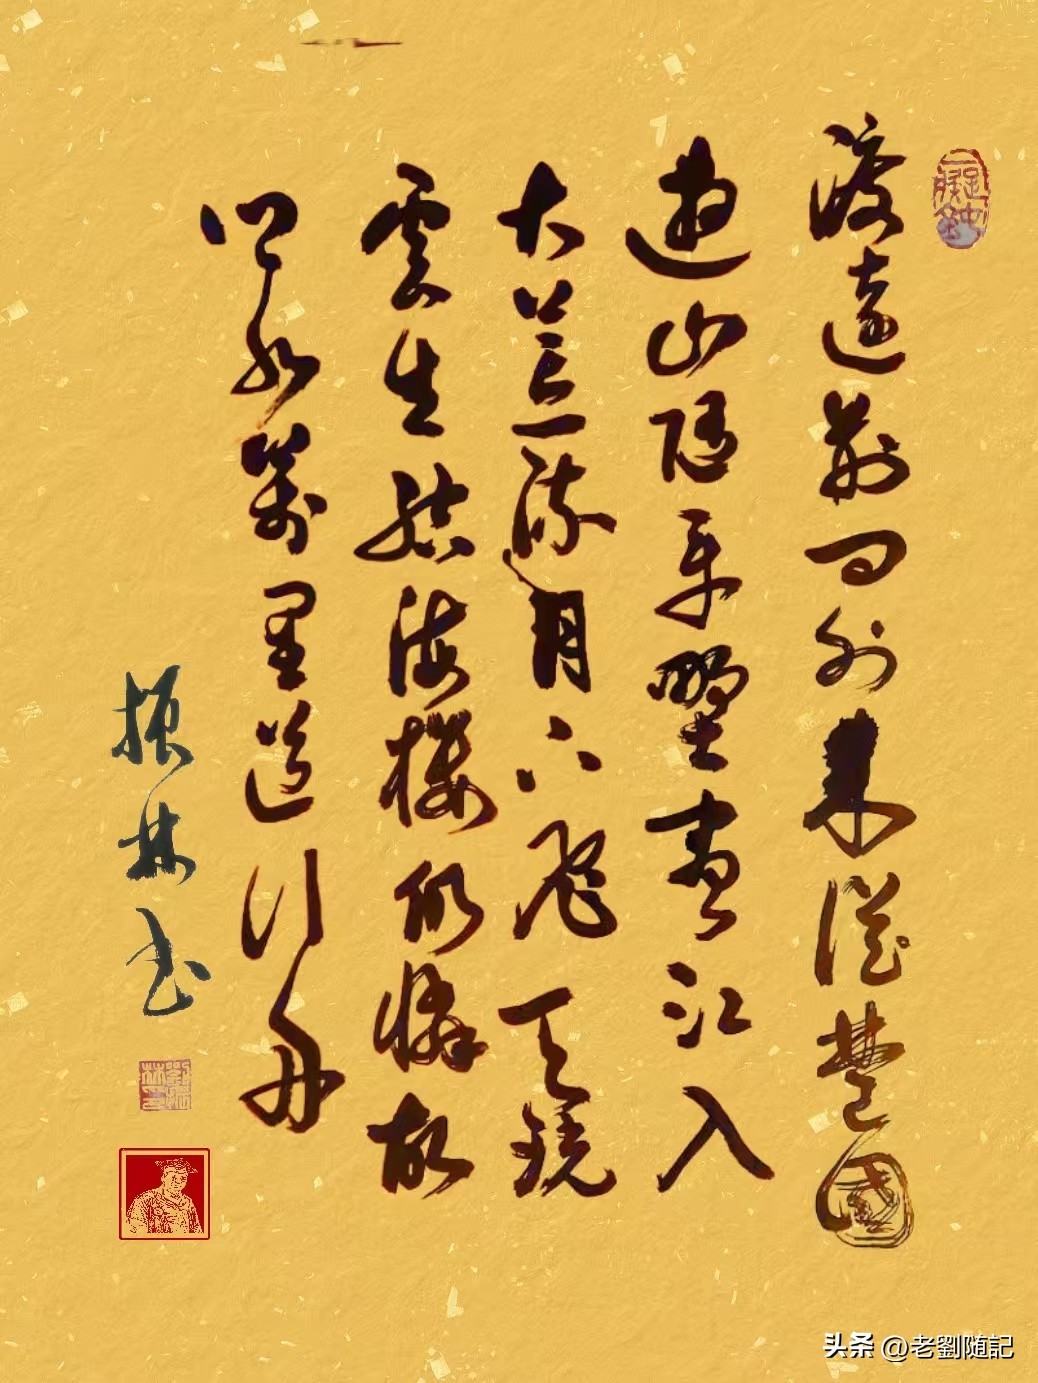 渡遠荊門外來從楚國
遊山隨平野盡江入
大荒流月下飛天鏡
雲生結海樓仍憐故
鄉水萬里送行舟
振林书
头条 @老劉随記